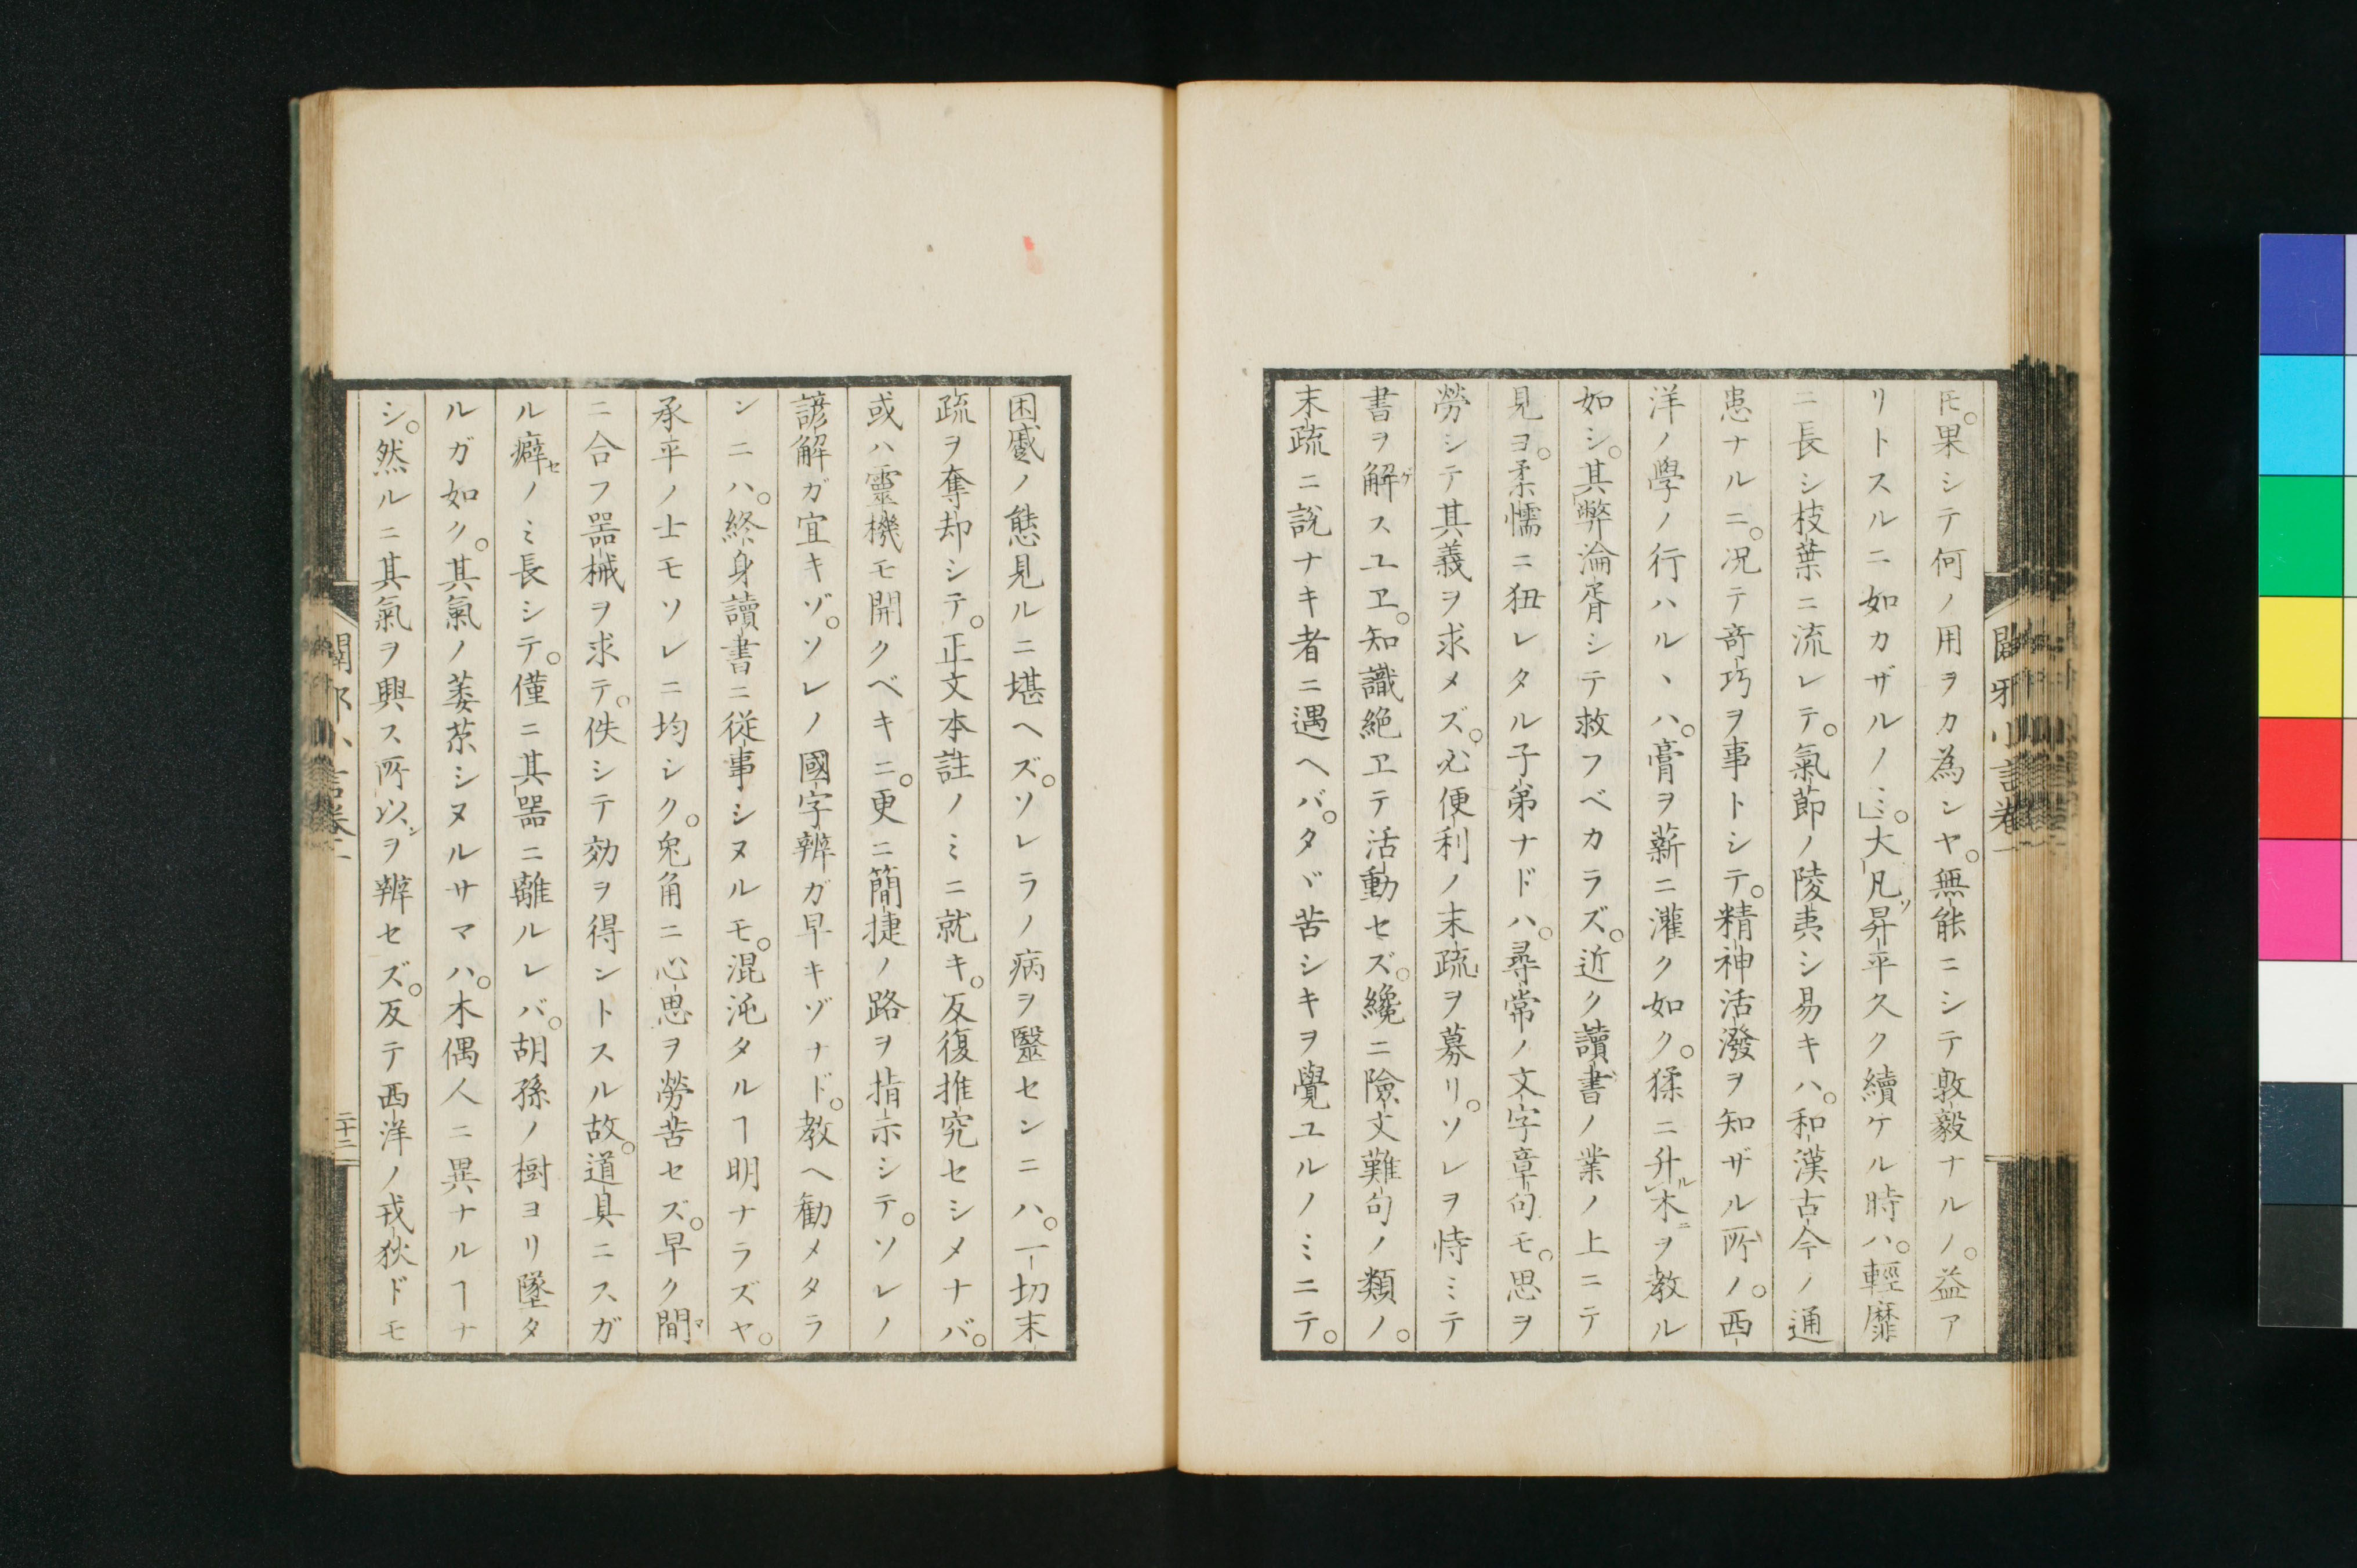 𪜈。果シテ何ノ用ヲカ為ンヤ。無能ニシテ敦毅ナルノ。益ア
リトスルニ如カザルノミ」。大凡ソ昇平久ク續ケル時ハ。輕靡
ニ長シ枝葉ニ流レテ。氣節ノ陵夷シ易キハ。和漢古今ノ通
患ナルニ。况テ竒巧ヲ事トシテ。精神活潑ヲ知ザル所ノ。西
洋ノ學ノ行ハルヽハ。膏ヲ薪ニ灌ク如ク。猱ニ升ルレ木ニヲ教ル
如シ。其弊淪胥シテ救フベカラズ。近ク讀書ノ業ノ上ニテ
見ヨ。柔懦ニ狃レタル子弟ナドハ。尋常ノ文字章句モ。思ヲ
勞シテ其義ヲ求メズ。必便利ノ末疏ヲ募リ。ソレヲ恃ミテ
書ヲ解ゲスユヱ。知識絶ヱテ活動セズ。纔ニ險文難句ノ類ノ。
末疏ニ説ナキ者ニ遇ヘバ。タヾ苦シキヲ覺ユルノミニテ。
闢邪小言卷二
困蹙ノ態見ルニ堪ヘズ。ソレラノ病ヲ醫センニハ。一切末
疏ヲ奪却シテ。正文本註ノミニ就キ。反復推究セシメナバ。
或ハ靈機モ開クベキニ。更ニ簡捷ノ路ヲ指示シテ。ソレノ
諺解ガ宜キゾ。ソレノ國字辨ガ早キゾナド。教ヘ勸メタラ
ンニハ。終身讀書ニ従事シヌルモ。混沌タルヿ明ナラズヤ。
承平ノ士モソレニ均シク。兔角ニ心思ヲ勞苦セズ。早ク間マ
ニ合フ噐械ヲ求テ。佚シテ効ヲ得ントスル故。道具ニスガ
ル癖セノミ長シテ。僅ニ其噐ニ離ルレバ。胡孫ノ樹ヨリ墜タ
ルガ如ク。其氣ノ萎苶シヌルサマハ。木偶人ニ異ナルヿナ
シ。然ルニ其氣ヲ興ス所以ンヲ辨セズ。反テ西洋ノ戎狄ドモ
闢邪小言卷二
二十二